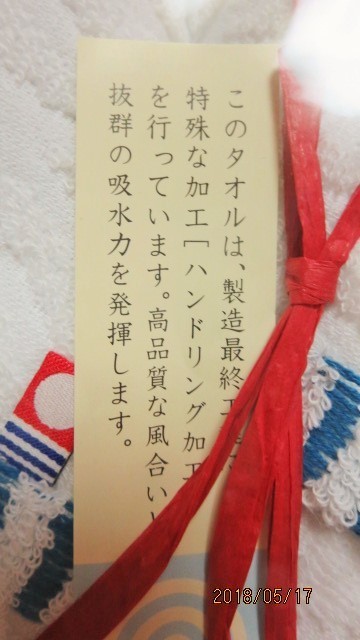 このタオルは、製造最終工
特殊な加工［ハンドリング加工
を行っています。高品質な風合い
抜群の吸水力を発揮します。
2018/05/17